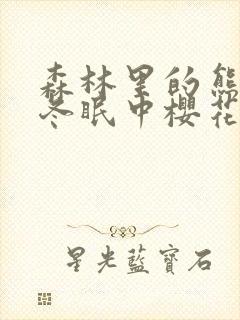 森林里的熊
冬眠中櫻花
星光藍寶石